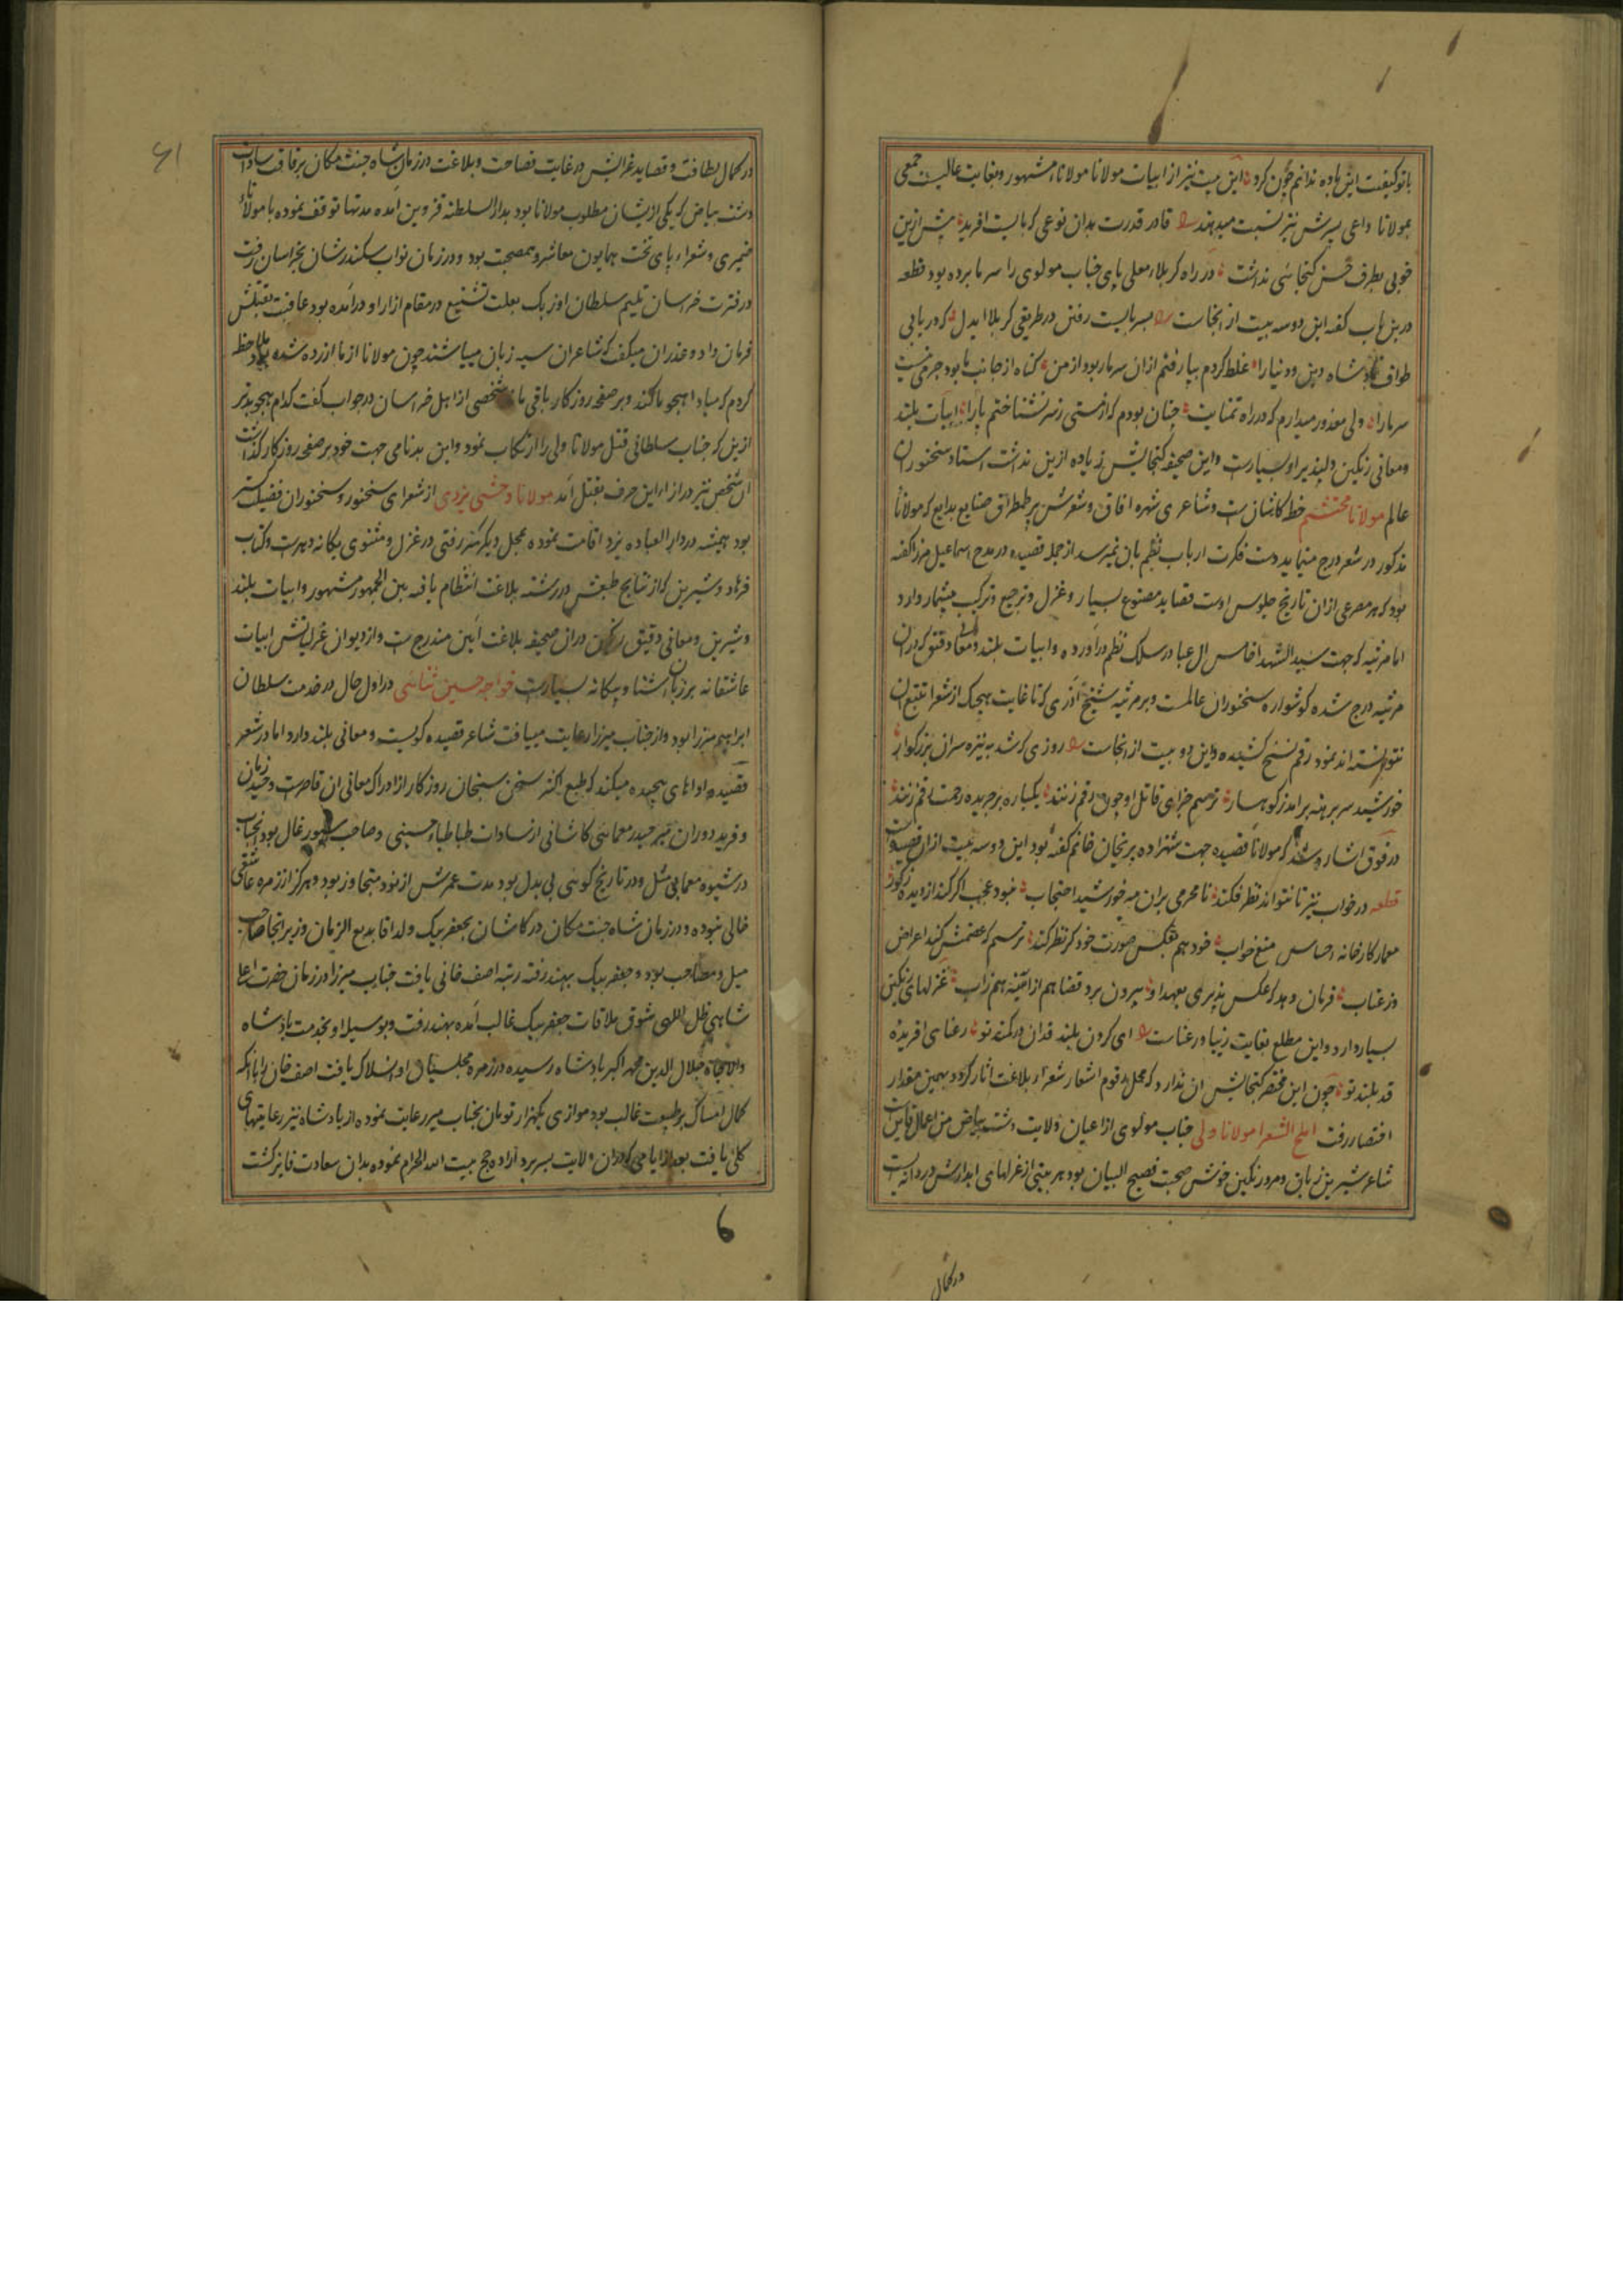 با تو کیفیت این باده ندانم چون کرد این بیت نیز از ابیات مولانا مولانا مشهور و بغایت عالیست جمعی
بمولانا داعی پسرش نیز نسبت میدهند قادر قدرت بدان نوعی که بایست افرید پیش ازین
خوبی بطرف حسن کنجایی نداشت در راه کربلا معلی پای جناب مولوی را سرما برده بود قطعه
درین باب کفه این دوسه بیت از انجاست بسر بایست رفتن در طریق کربلا ایدل که دریابی
طواف شاه دین و دنیا را غلط کردم بپا رفتم ازان سرما ربود از من کناه از جانب ما بود جرمی نیست
سرما را ولی معذور میدارم که در راه تمنایت چنان بودم که از مستی ز سر نشناختم پا را ابیات بلند
و معانی رنکین دلپذیر او بسیارست و این صحیفه کنجایش زیاده ازین نداشت استاد سخنوران
عالم مولانا محتشم خط کاشانست و شاعری شهره افاق و شعرش پر طمطراق صنایع بدایع که مولانا
مذکور در شعر درج مینماید دست فکرت ارباب نظم بان نمیرسد از جمله قصیده در مدح اسماعیل میرزا کفه
بود که هر مصرعی ازان تاریخ جلوس اوست قصاید مصنوع بسیار و غزل و ترجیع و ترکیب بیشمار دارد
اما مرثیه که جهت سید الشهدا خامس ال عبا در سلک نظم دراورده و ابیات بلند و معانی دقیق که دران
مرثیه درج شده کوشواره سخنوران عالمست و بر مرثیه شیخ آذری که تا غایت هیچیک از شعرا تتبع ان
نتوانسته اند نمود رقم نسخ کشیده و این دو بیت از انجاست روزی که شد به نیزه سر ان بزرکوار
خورشید سر برهنه برامد ز کوهسار ترسم جزای قاتل او چون رقم زنند یکباره بر جریده رحمت قلم زنند
در فوق اشاره شد که مولانا قصیده جهت شهزاده پریخان خانم کفته بود این دوسه بیت ازان قصیده است
قطعه در خواب نیز تا نتواند نظر فکند نامحرمی بران مه خورشید احتجاب نبود عجب اکر کند از دیده ذکور
معمار کارخانه احساس منع خواب خود هم بعکس صورت خود کر نظر کند ترسم که عصمتش کند اعراض
در عتاب فرمان دهد که عکس پذیری بعهد او بیرون برد قضا هم از آئینه هم ز آب غزلهای رنکین
بسیار دارد و این مطلع بغایت زیبا و رعناست ای کردن بلند قدان در کمند تو رعنایی افریده
قد بلند تو چون این مختصر کنجایش ان ندارد که محل رقوم اشعار شعراء بلاغت اثار کردد بهمین مقدار
اختصار رفت املح الشعرا مولانا ولی جناب مولوی از اعیان ولایت دشت بیاض من اعمال قاین
شاعر شیرین زبان و مرد رنکین خوش صحبت فصیح البیان بود هر بیتی از غزلهای ابدارش دردانه ایست
در کمال
در کمال لطافت و قصاید غرایش در غایت فصاحت و بلاغت در زمان شاه جنت مکان برفاقت سادات
دشت بیاض که یکی ازیشان مطلوب مولانا بود بدار السلطنه قزوین آمده مدتها توقف نموده با مولانا
ضمیری و شعراء پای تخت همایون معاشر و همصحبت بود و در زمان نواب سکندر شان بخراسان رفت
در فترت خراسان یتیم سلطان اوزبک بعلت تشنیع در مقام ازار او درآمده بود عاقبت بقتلش
فرمان داد و عذر ان میکفت که شاعران سیه زبان میباشند چون مولانا از ما ازرده شده ملاحظه
کردم که مبادا هجو ما کند و بر صفحه روزکار باقی ماند شخصی از اهل خراسان در جواب کفت کدام هجو بدتر
ازین که جناب سلطانی قتل مولانا ولی را ارتکاب نمود و این بدنامی جهت خود بر صفحه روزکار کذاشت
ان شخص نیز در ازاء این حرف بقتل آمد مولانا وحشی یزدی از شعرای سخنور و سخنوران فضیلت کستر
بود همیشه در دار العباده یزد اقامت نموده بمحل دیکر کمتر رفتی در غزل و مثنوی یکانه دهرست و کتاب
فرهاد و شیرین که از نتایج طبعش در رشته بلاغت انتظام یافته بین الجمهور مشهور و ابیات بلند
و شیرین و معانی دقیق رنکین دران صحیفه بلاغت آیین مندرجست و از دیوان غزلیاتش ابیات
عاشقانه بر زبان اشنا و بیکانه بسیارست خواجه حسین ثنایی در اول حال در خدمت سلطان
ابراهیم میرزا بود و از جناب میرزا رعایت مییافت شاعر قصیده کویست و معانی بلند دارد اما در شعر
قصیده اداهای پیچیده میکند که طبع اکثر سخن سنجان روزکار از ادراک معانی ان قاصرست وحید زمان
و فرید دوران میر حیدر معمایی کاشانی از سادات طباطباء حسینی و صاحب سیورغال بود بجناب
در شیوه معما بی مثل و در تاریخ کویی بی بدل بود مدت عمرش از نود متجاوز بود و هرکز از زمره عاشقی
خالی نبوده و در زمان شاه جنت مکان در کاشان بجعفر بیک ولد اقا بدیع الزمان وزیر انجا صاحب
میل و مصاحب بود و جعفر بیک بهند رفته رتبه اصف خانی یافت جناب میرزا در زمان حضرت اعلی
شاهی ظل اللهی شوق ملاقات جعفر بیک غالب آمده بهند رفت و بوسیله او بخدمت پادشاه
والاجاه جلال الدین محمد اکبر پادشاه رسیده در زمره مجلسیان او انسلاک یافت اصف خان را با انکه
کمال امساک بر طبیعت غالب بود موازی یکهزار تومان بجناب میر رعایت نموده از پادشاه نیز رعایتهای
کلی یافت بعد از ایامی که دران ولایت بسر برد اراده حج بیت الله الحرام نموده بدان سعادت فایز کشت